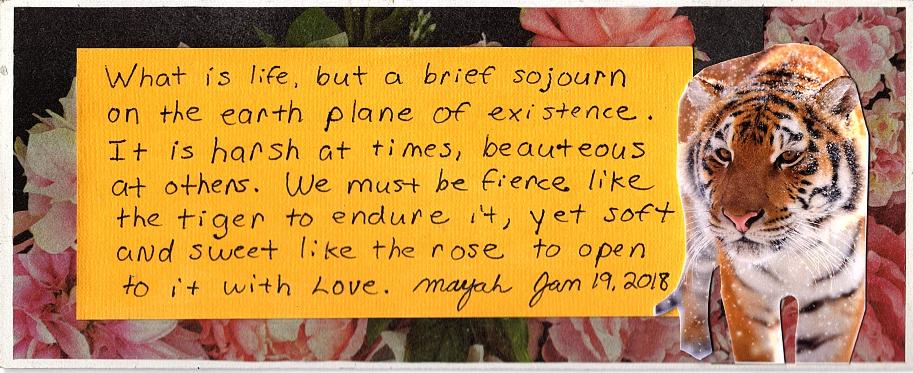 What is life, but a brief sojourn
on the earth plane of existence.
It is harsh at times, beauteous
at others. We must be fierce like
the tiger to endure it, yet soft
and sweet like the rose to open
to it with Love. mayah Jan 19, 2018